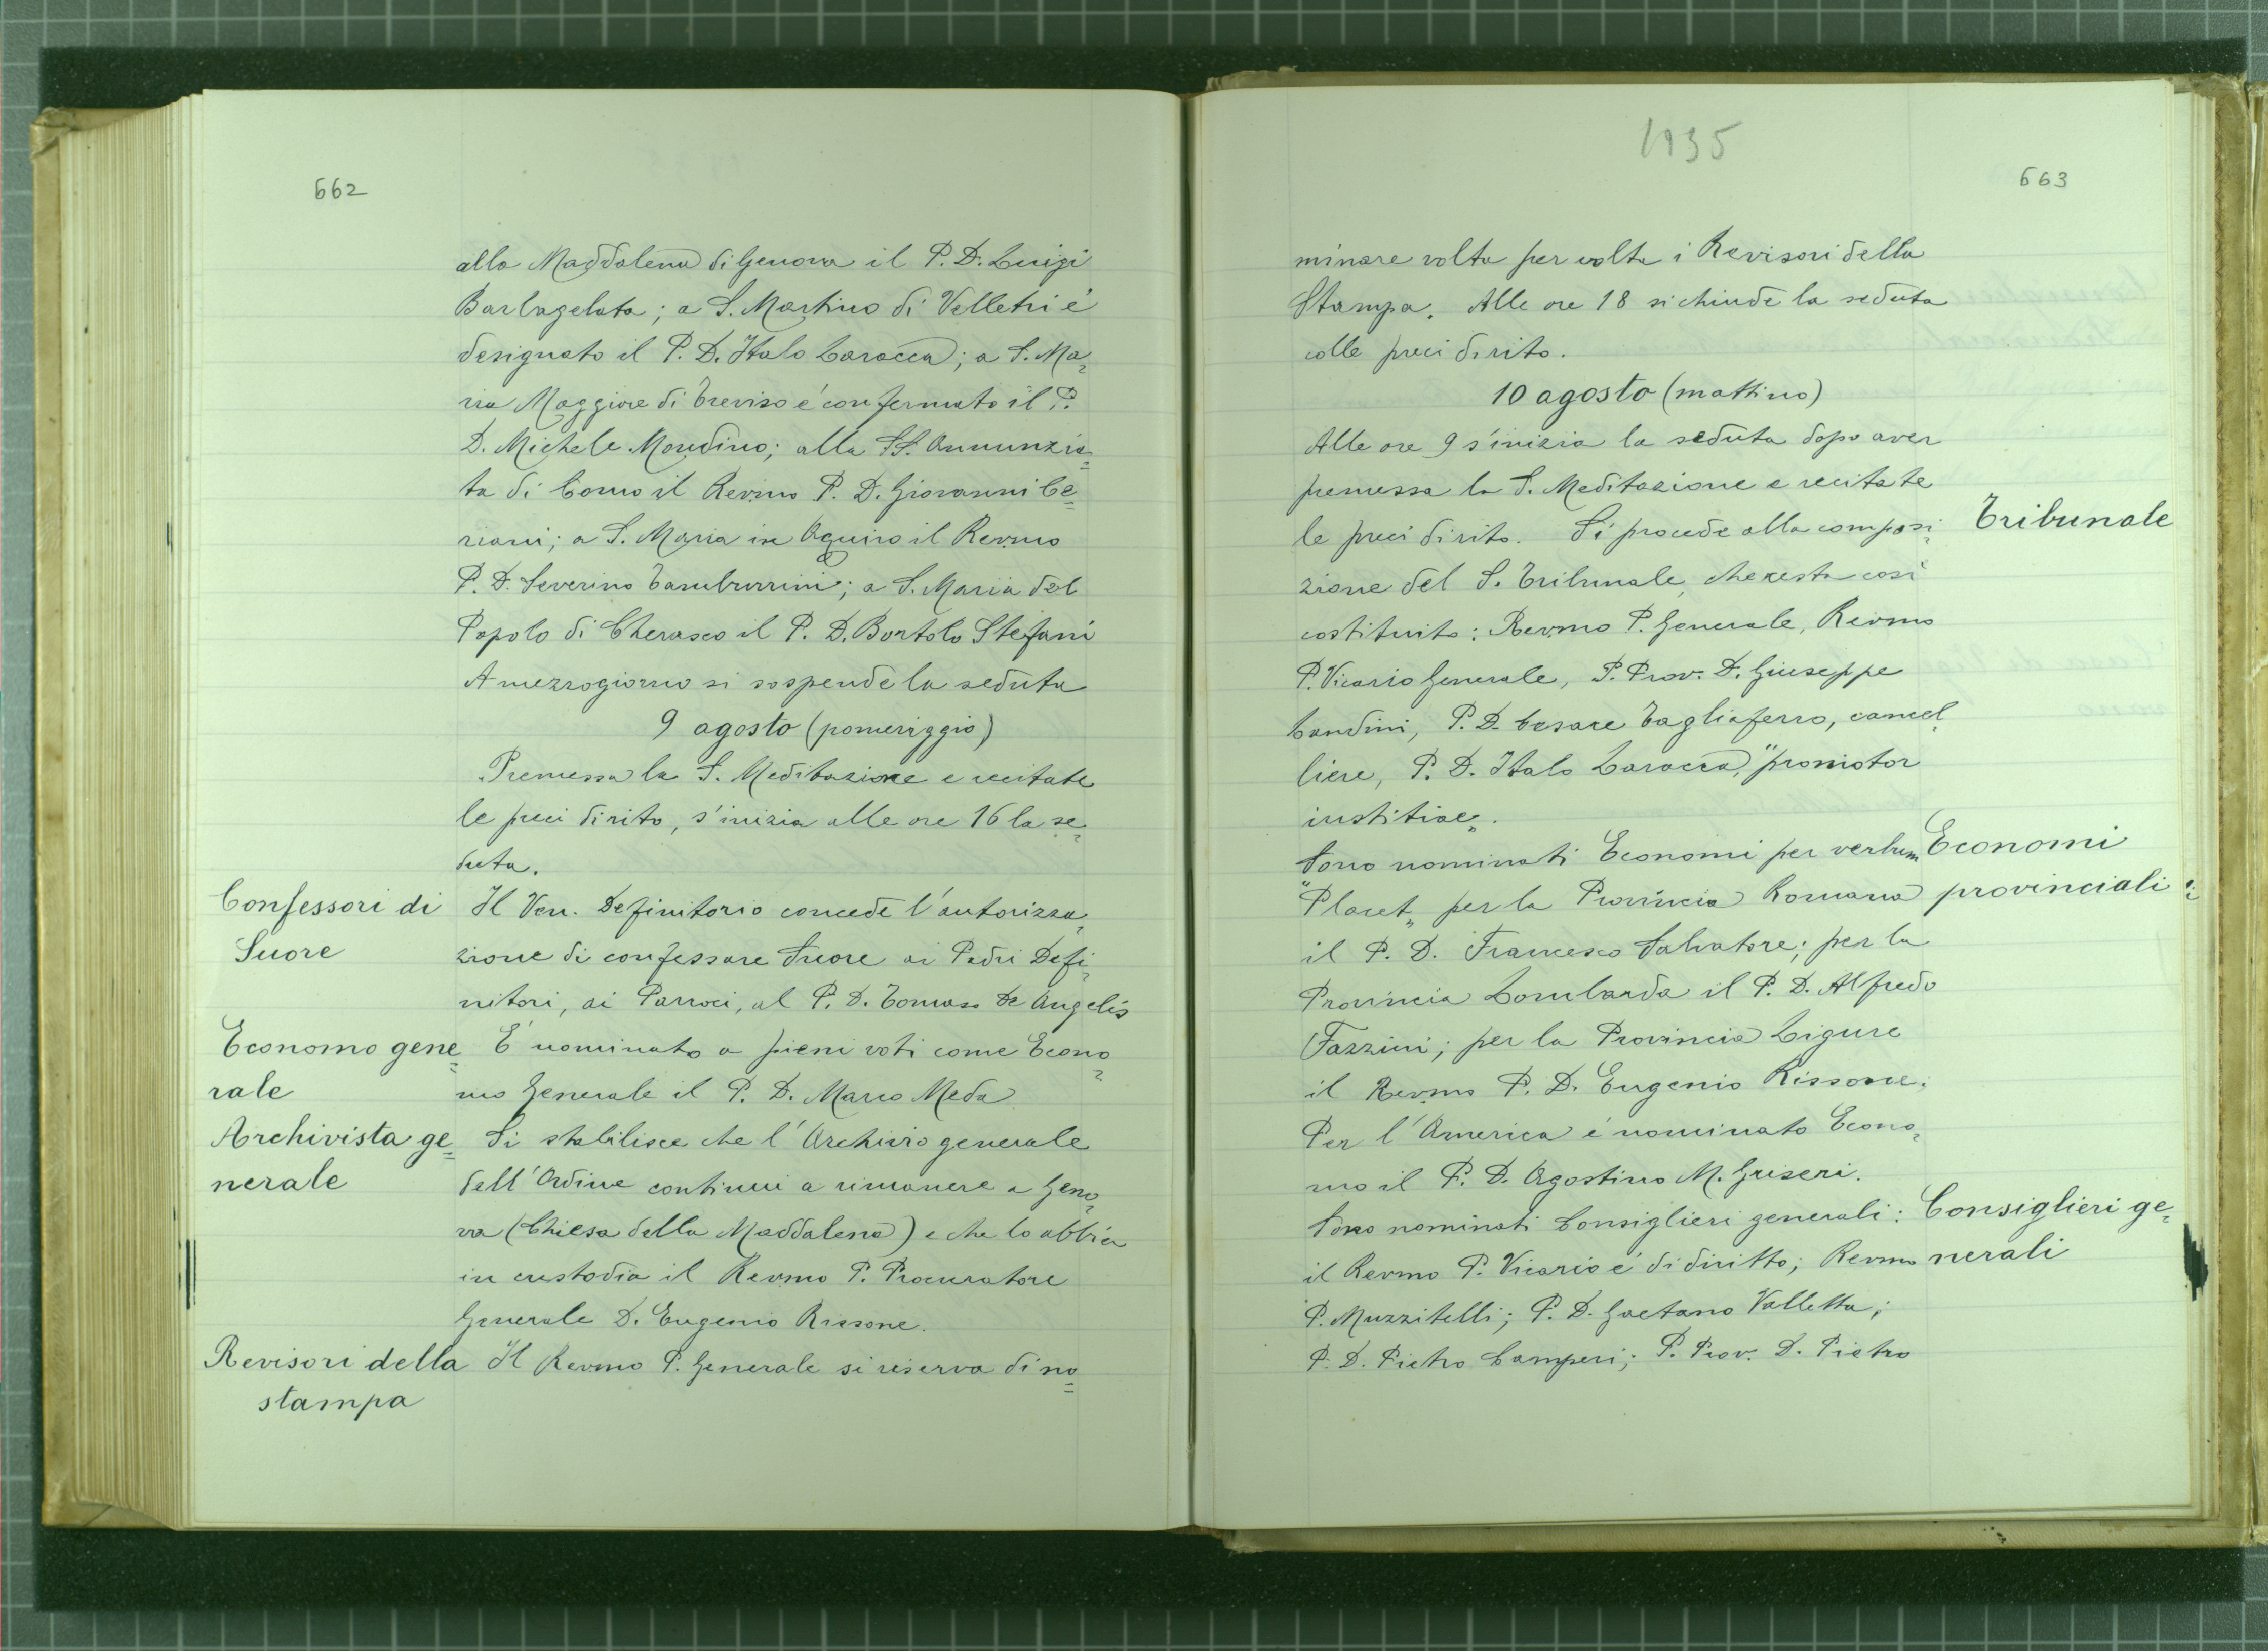 662
alla Maddalena di Genova il P. D. Luigi
Barbagelata; a S. Martino di Velletri è
designato il P. D. Italo Laracca; a S. Ma=
ria Maggiore di Treviso è confermato il P.
D. Michele Mondino; alla SS. Annunzia=
ta di Como il Revmo P. D. Giovanni Ce=
riani; a S. Maria in Aquiro il Revmo
P. D. Severino Tamburrini; a S. Maria del
Popolo di Cherasco il P. D. Bortolo Stefani
A mezzogiorno si sospende la seduta
9 agosto (pomeriggio)
Premessa la S. Meditazione e recitate
le preci di rito, s'inizia alle ore 16 la se=
duta.
Confessori di
Suore
Il Ven. Definitorio concede l'autorizza=
zione di confessare Suore ai Padri Defi=
nitori, ai Parroci, al P. D. Tomaso De Angelis
Economo gene=
rale
E' nominato a pieni voti come Econo=
mo Generale il P. D. Marco Meda
Archivista ge=
nerale
Si stabilisce che l'Archivio generale
dell'Ordine continui a rimanere a Geno=
va (Chiesa della Maddalena) e che lo abbia
in custodia il Revmo P. Procuratore
Generale D. Eugenio Rissone.
Revisori della
stampa
Il Revmo P. Generale si riserva di no=
1935
663
minare volta per volta i Revisori della
Stampa. Alle ore 18 si chiude la seduta
colle preci di rito.
10 agosto (mattino)
Alle ore 9 s'inizia la seduta dopo aver
premessa la S. Meditazione e recitate
le preci di rito. Si procede alla composi=
Tribunale
zione del S. Tribunale, che resta così
costituito: Revmo P. Generale, Revmo
P. Vicario Generale, P. Prov. D. Giuseppe
Landini, P. D. Cesare Tagliaferro, cancel=
liere, P. D. Italo Laracca, "promotor
iustitiae„.
Sono nominati Economi per verbum
"Placet„ per la Provincia Romana
Economi
provinciali:
il P. D. Francesco Salvatore; per la
Provincia Lombarda il P. D. Alfredo
Fazzini; per la Provincia Ligure
il Revmo P. D. Eugenio Rissone.
Per l'America è nominato Econo=
mo il P. D. Agostino M. Griseri.
Sono nominati Consiglieri generali:
il Revmo P. Vicario è di diritto; Revmo
Consiglieri ge=
nerali
P. Muzzitelli; P. D. Gaetano Valletta;
P. D. Pietro Camperi; P. Prov. D. Pietro